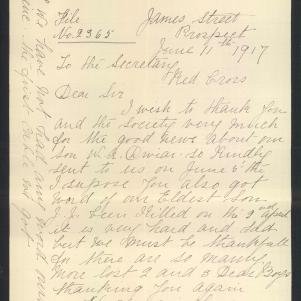 File
No. 2365
James Street
Prospect
June 11th 1917
To the Secretary
Red Cross
Dear Sir
I wish to thank you
and the Society very much
for the good news about our
Son W. R. so kindly
sent to us on June 5th
I suppose you also got
word of our Eldest Son
being killed on the 2nd April
it is very hard and sad
but we must be thankfull
for there are so many
more lost 2 and 3 Dear Boys
thanking you again
We have not had any word